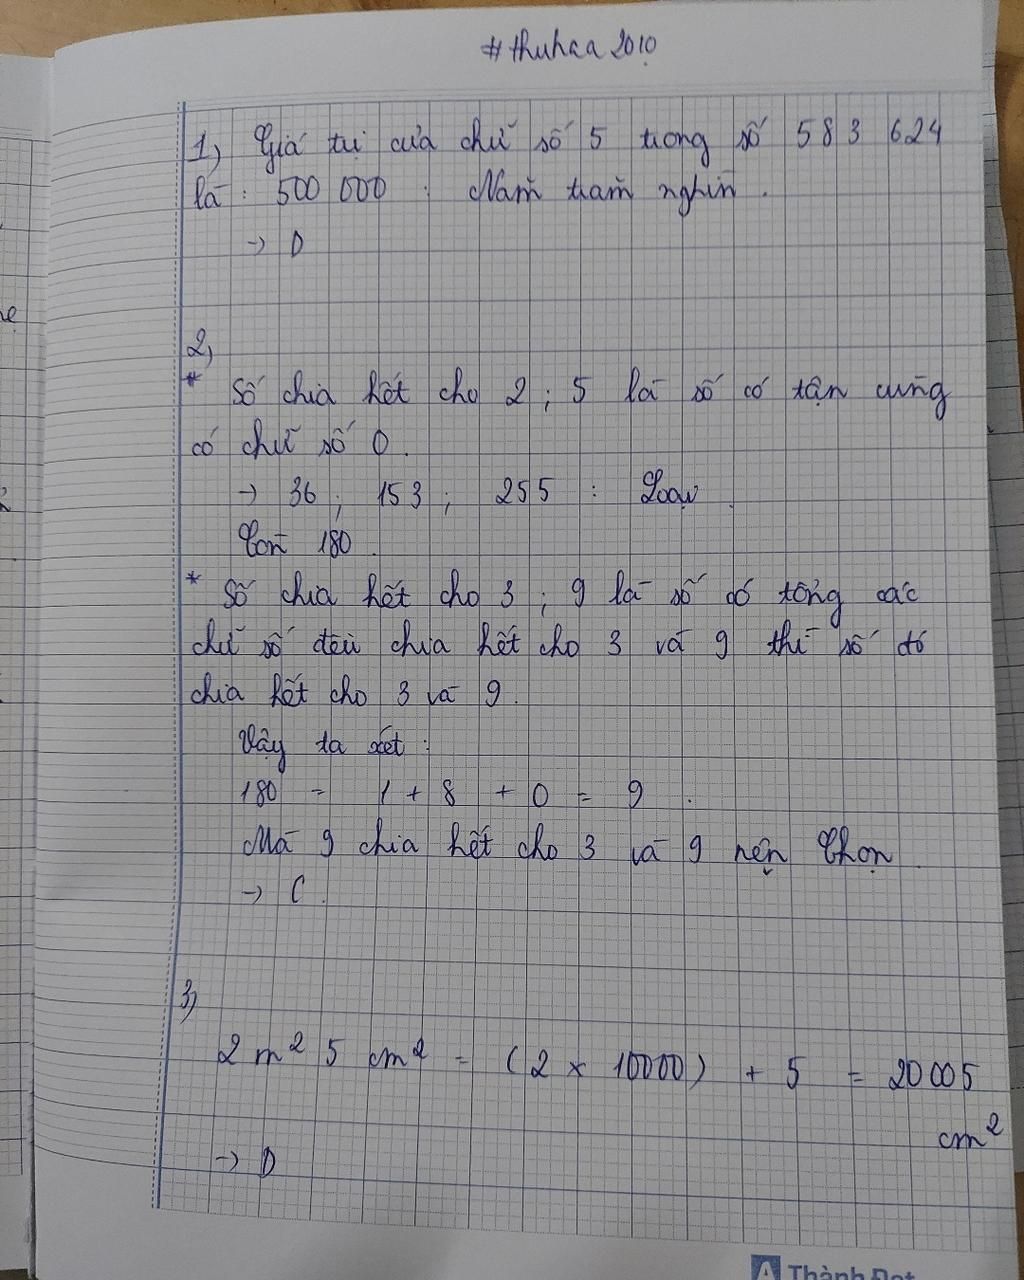 #thuhaa2010
1) Giá trị của chữ số 5 trong số 583 624
là : 500 000 : Năm trăm nghìn .
→ D
2)
* Số chia hết cho 2 ; 5 là số có tận cùng
có chữ số 0 .
→ 36 ; 153 ; 255 : Loại .
Còn 180 .
* Số chia hết cho 3 ; 9 là số có tổng các
chữ số đều chia hết cho 3 và 9 thì số đó
chia hết cho 3 và 9 .
Vậy ta xét :
180 = 1 + 8 + 0 = 9 .
Mà 9 chia hết cho 3 và 9 nên Chọn .
→ C .
3)
2 m² 5 cm² = (2 × 10000) + 5 = 20005
cm²
→ D
Thành Đạt